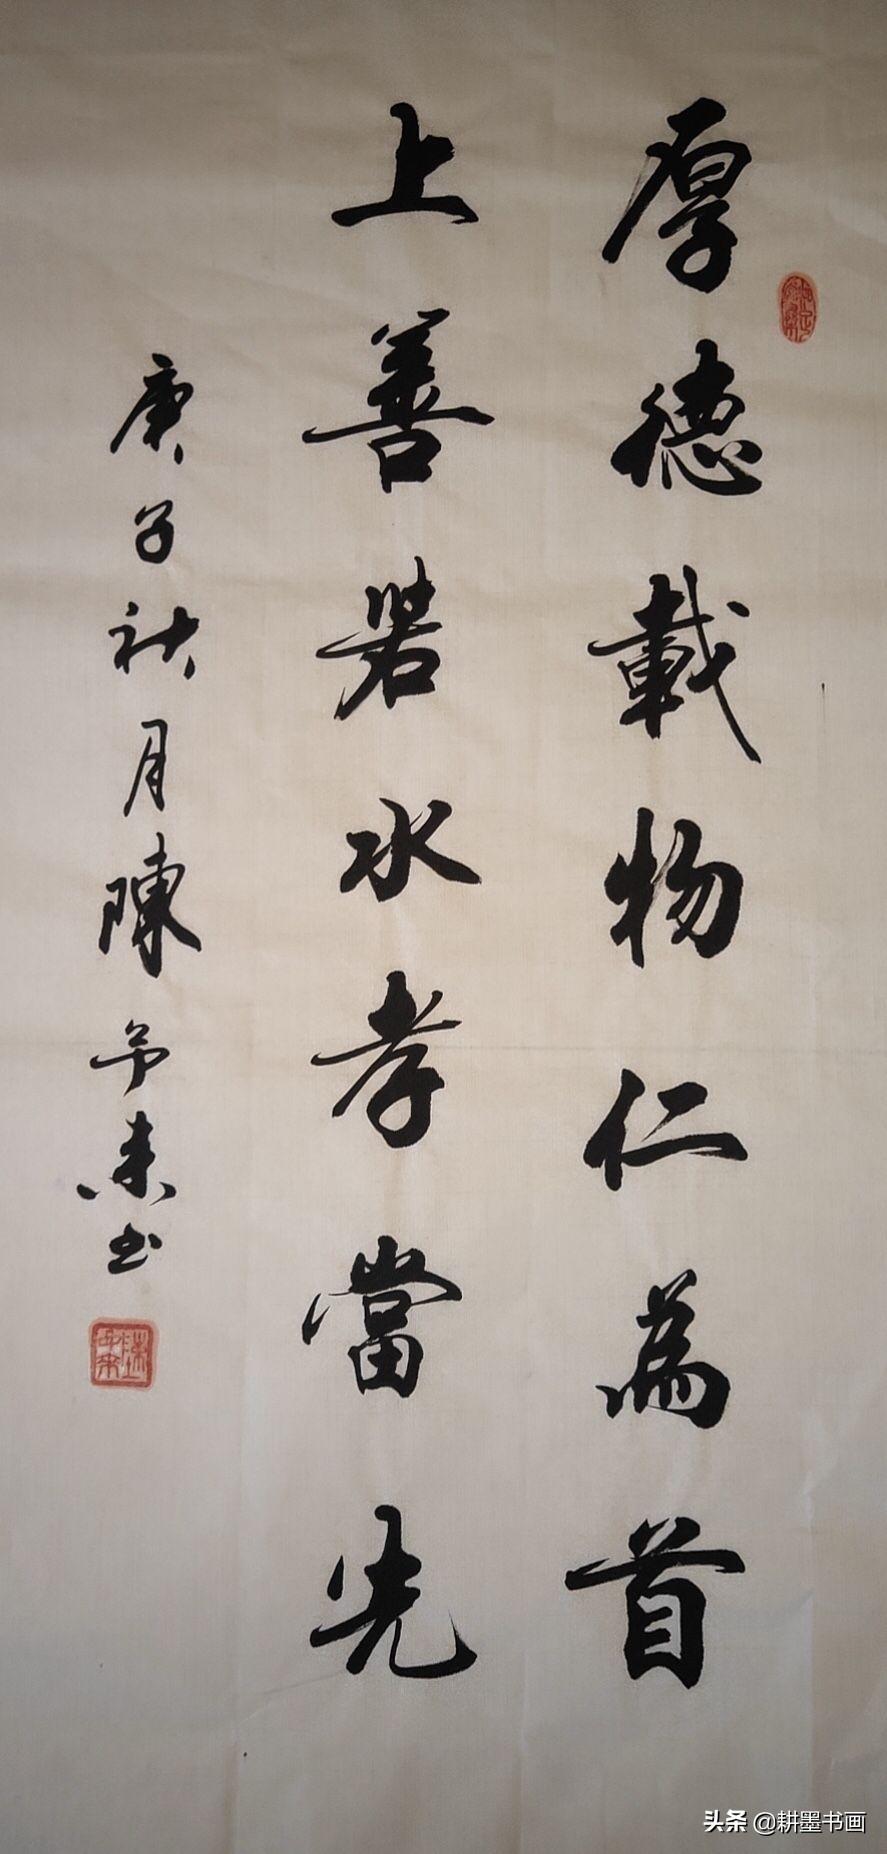 厚德載物仁為首
上善若水孝當先
庚子秋月陳予来书
头条 @耕墨书画